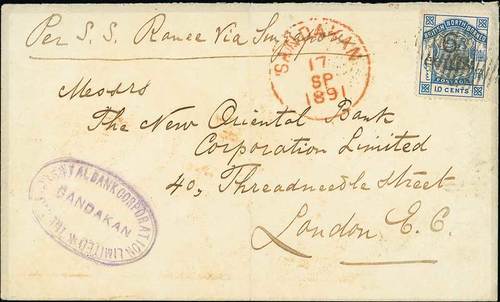 Per S. S. Ranee Via Singapore
SANDAKAN
17
SP
1891
BRITISH NORTH BORNEO
6
POSTAGE
10 CENTS
Messrs
The New Oriental Bank
Corporation Limited
40, Threadneedle Street
London E. C.
ORIENTAL BANK CORPORATION LIMITED
SANDAKAN